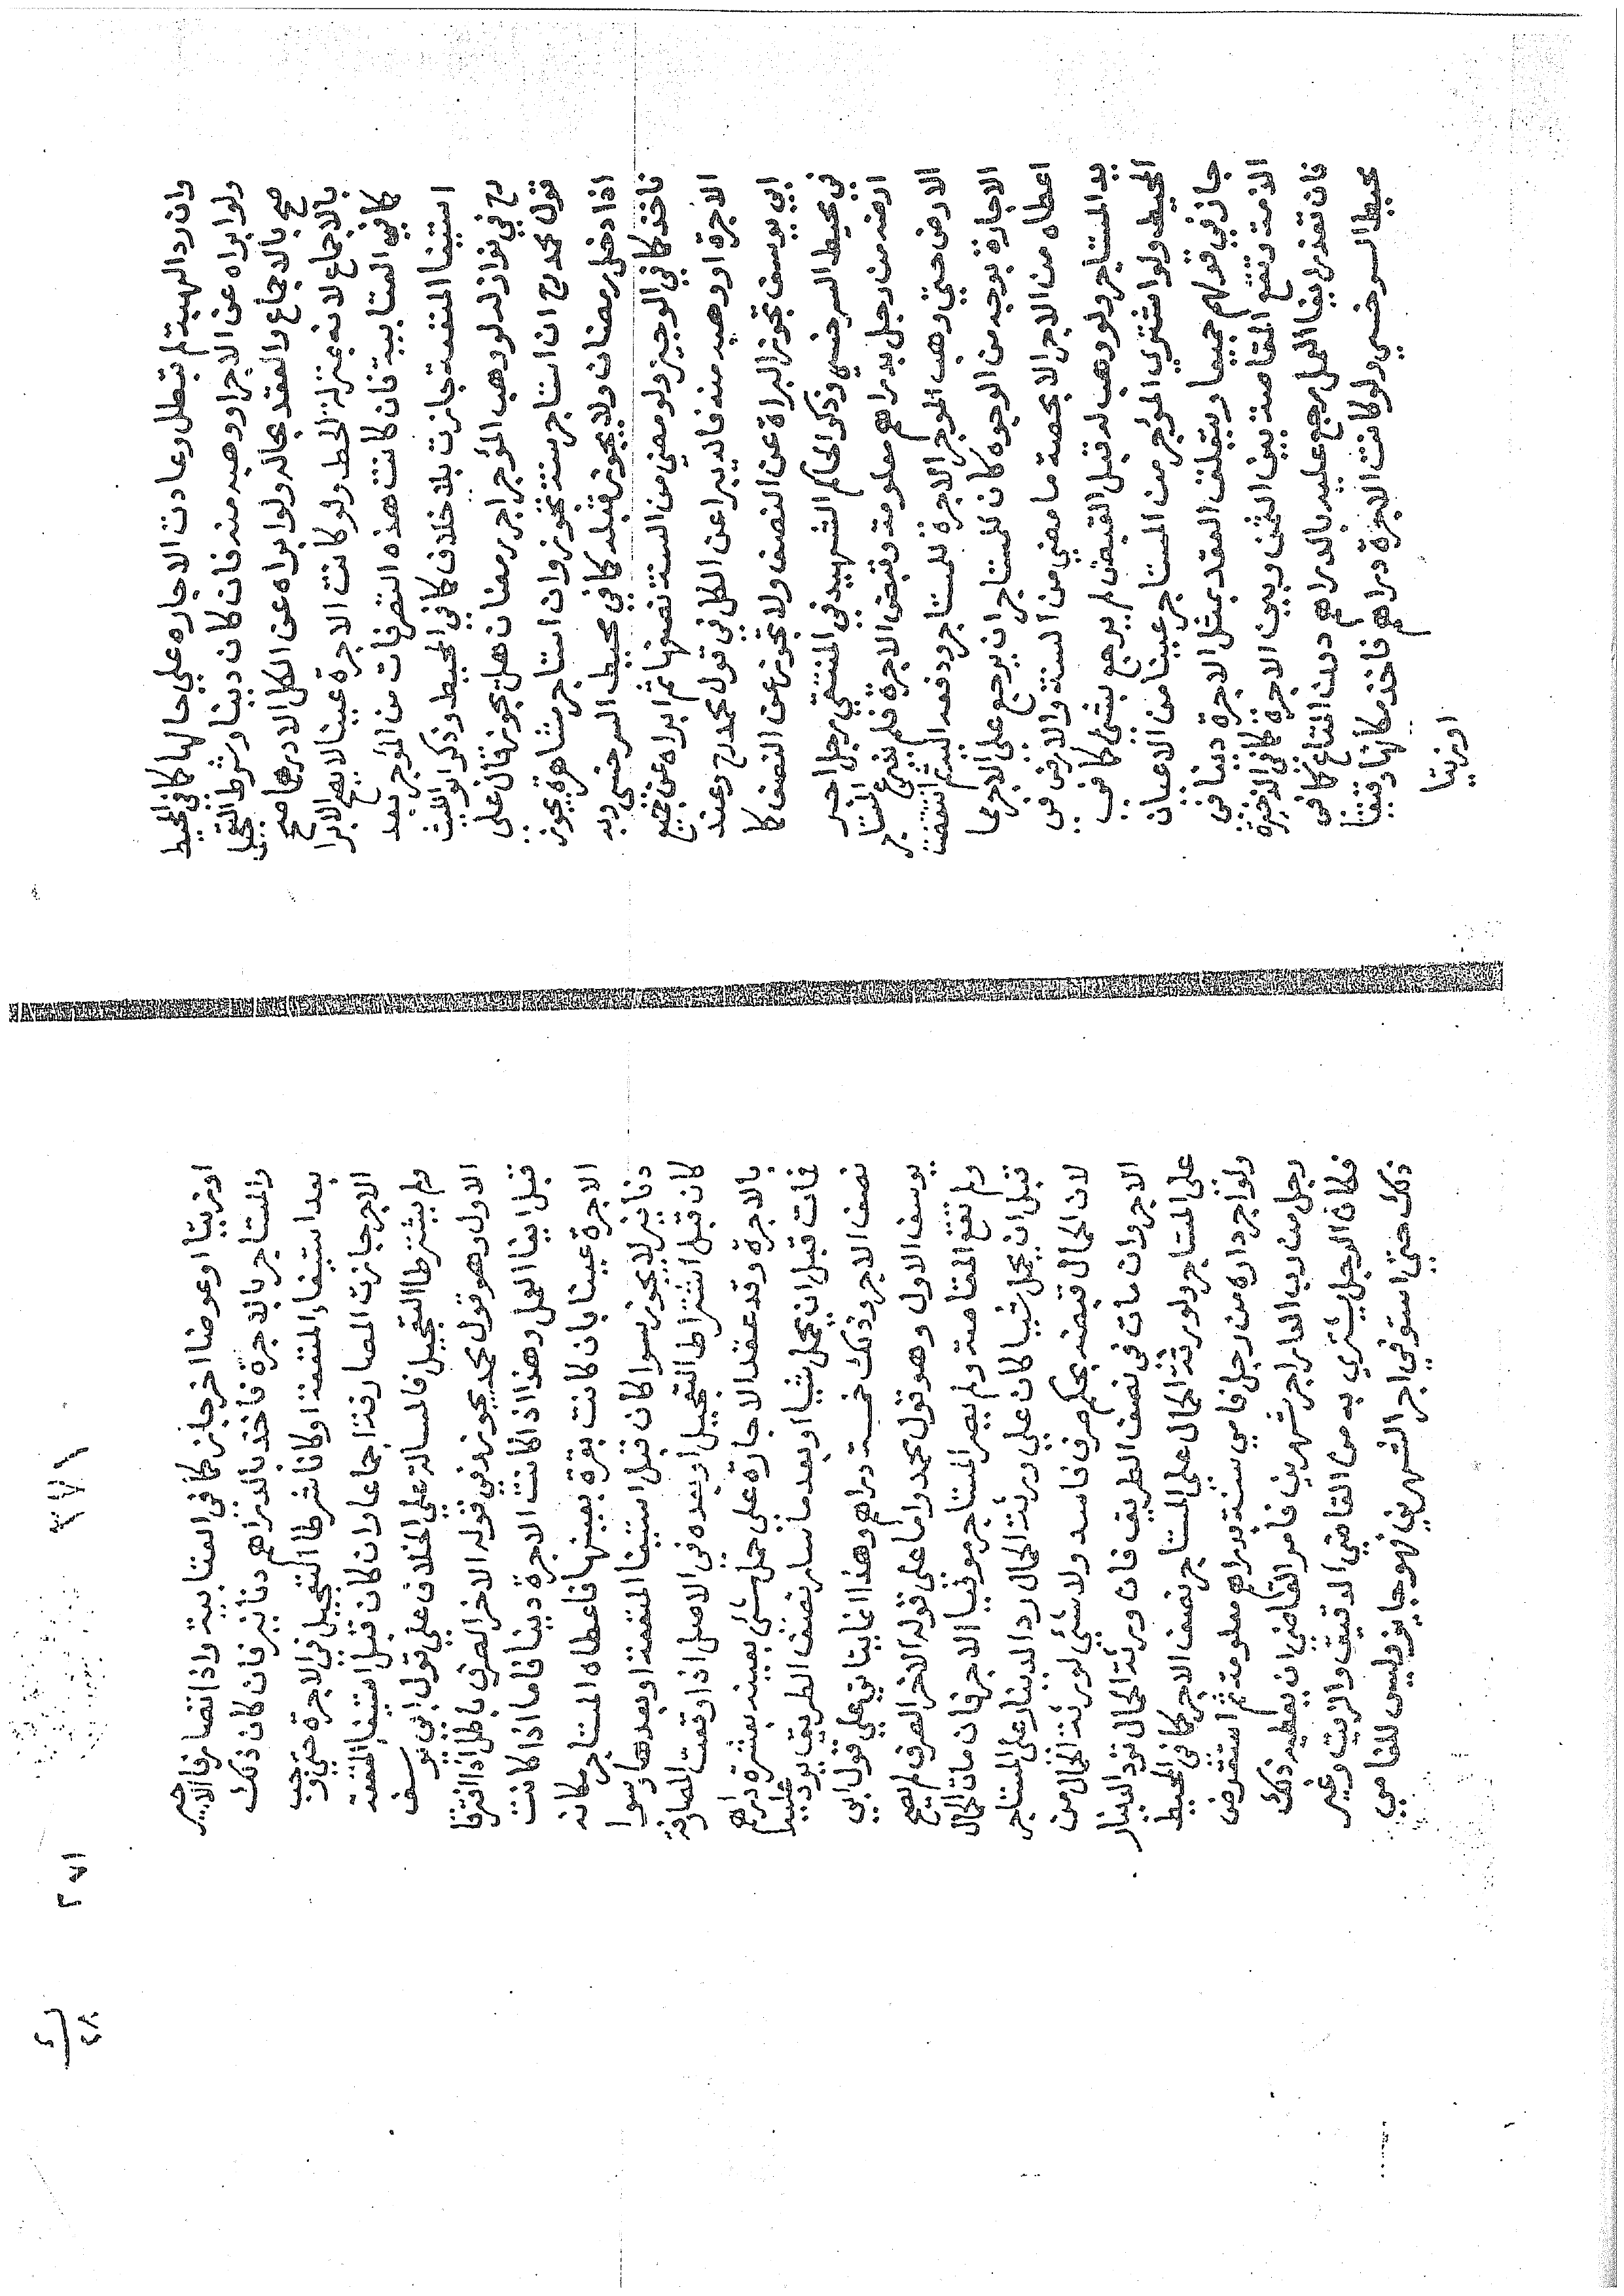 وان رد الهبة لم تبطل وعادت الاجاره علي حالها كافي المحيط
ولوابراه عن الاجر اووهبه منه فان كان دينا وشرط التعجيل
صح بالاجماع والعقد بحاله ولوابراه عن الكل الا درهما صح
بالاجماع لانه بمنزلة الحط ولوكانت الاجرة عينا لايصح الابرا
كافي العتابية فان كانت هذه التصرفات من المؤجر بعد
استيفا المنفعة جازت بلا خلاف كافي المحيط وذكر ابوالليث
رح في نوازله لووهب المؤجر اجر رمضان هل تجوز قال علي
قول محمد رح ان استاجر سنة تجوز وان استاجر مشاهرة يجوز
اذا دخل رمضان ولايجوز قبله كافي محيط السرخسي وبه
ناخذ كافي الوجيز ولو مضي من السنة نصفها ثم ابراه عن جميع
الاجرة اووهبه منه فانه يبرا عن الكل في قول محمد رح وعند
ابي يوسف تجوز البراة عن النصف ولا تجوز عن النصف كا
في محيط السرخسي وذكر الحاكم الشهيد في المنتقي رجل اجر
ارضه من رجل بدراهم معلومة وقبض الاجرة فلم يزرع المستاجر
الارض حتي وهب الموجر الاجرة للمستاجر ودفعه اليه ثم انتقضت
الاجارة بوجه من الوجوه كان للمستاجر ان يرجع علي الاجر بما
اعطاه من الاجر الا بحصة ما مضي من السنة والارض في
يد المستاجر ولو وهب له قبل القبض لم يرجع بشئ كا في
المحيط ولواشتري المؤجر من المستاجر عينا من الاعيان
جاز في قولهم جميعا ويتعلق العقد بمثل الاجرة دينا في
الذمة وتقع المقاصة بين الثمن وبين الاجرة كافي الذخيرة
فان تعذر ايفا العمل رجع عليه بالدراهم دون المتاع كافي
محيط السرخسي ولوكانت الاجرة دراهم فاخذ مكانها دقيقا
اوزيتا
اوزيتا اوعوضا اخر جاز كافي العتابية واذا تصارفا الاجير
والمستاجر بالاجرة فاخذ بالدراهم دنانير فان كان ذلك
بعد استيفاء المنفعة اوكانا شرطا التعجيل في الاجرة حتي وجب
الاجر جازت المصارفة اجماعا وان كان قبل استيفا المنفعة
ولم يشترطا التعجيل فالمسالة علي الخلاف علي قول ابي يوسف
الاول وهو قول محمد يجوز وفي قوله الاخر الصرف باطل اذا افترقا
قبل ايفا العمل وهذا اذا كانت الاجرة دينا فاما اذا كانت
الاجرة عينا بان كانت بقرة بعينها فاعطاه المستاجر مكانه
دنانير لايجوز سوا كان قبل استيفا المنفعة اوبعدها وسوا
كان قبل اشتراط التعجيل اوبعده في الاصل اذا وقعت المصارفة
بالاجرة وقد عقد الاجارة علي حمل شئ بعينه بعشرة دراهم
فمات قبل ان يحمل شيا اوبعد ما سار نصف الطريق يرد عليه
نصف الاجر وذلك خمسة دراهم وهذا انما يتاتي علي قول ابي
يوسف الاول وهو قول محمد واما علي قوله الاخر الصرف لم يصح
ولم تقع المقاصة ولم يصر المستاجر موفيا الاجر فان مات الحمال
قبل ان يحمل شيا كان علي ورثة الحمال رد الدينار علي المستاجر
لان الحمال قبضه بحكم صرف فاسد ولا شئي لورثة الحمال من
الاجر وان مات في نصف الطريق فان ورثة الحمال ترد الدينار
علي المستاجر ولورثة الحمال علي المستاجر نصف الاجر كافي المحيط
ولواجر داره من رجل فامي سنة بدراهم معلومة ثم استقرض
رجل من رب الدار اجر شهرين فامر القامي ان يعطيه ذلك
فكان الرجل يشتري به من القامي الدقيق والزيت وغير
ذلك حتي استوفي اجر الشهرين فهو جايز وليس للفامي
٢٧١